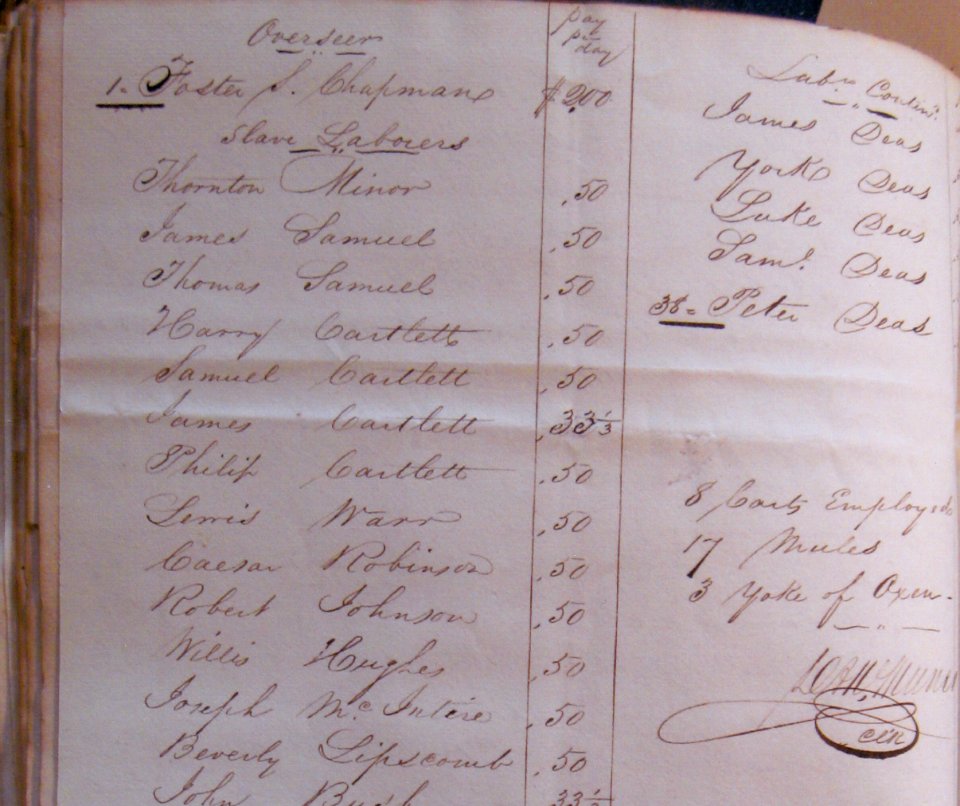 Overseer
pay
pr
day
1. Foster S. Chapman $2.00
Slave Laborers
Thornton Minor .50
James Samuel .50
Thomas Samuel .50
Harry Cartlett .50
Samuel Cartlett .50
James Cartlett .33⅓
Philip Cartlett .50
Lewis Warr .50
Caesar Robinson .50
Robert Johnson .50
Willis Hughes .50
Joseph McIntire .50
Beverly Lipscomb .50
John Bush .33⅓
Labrs Contind
James Deas
York Deas
Luke Deas
Saml. Deas
38 = Peter Deas
8 Carts Employed
17 Mules
3 Yoke of Oxen